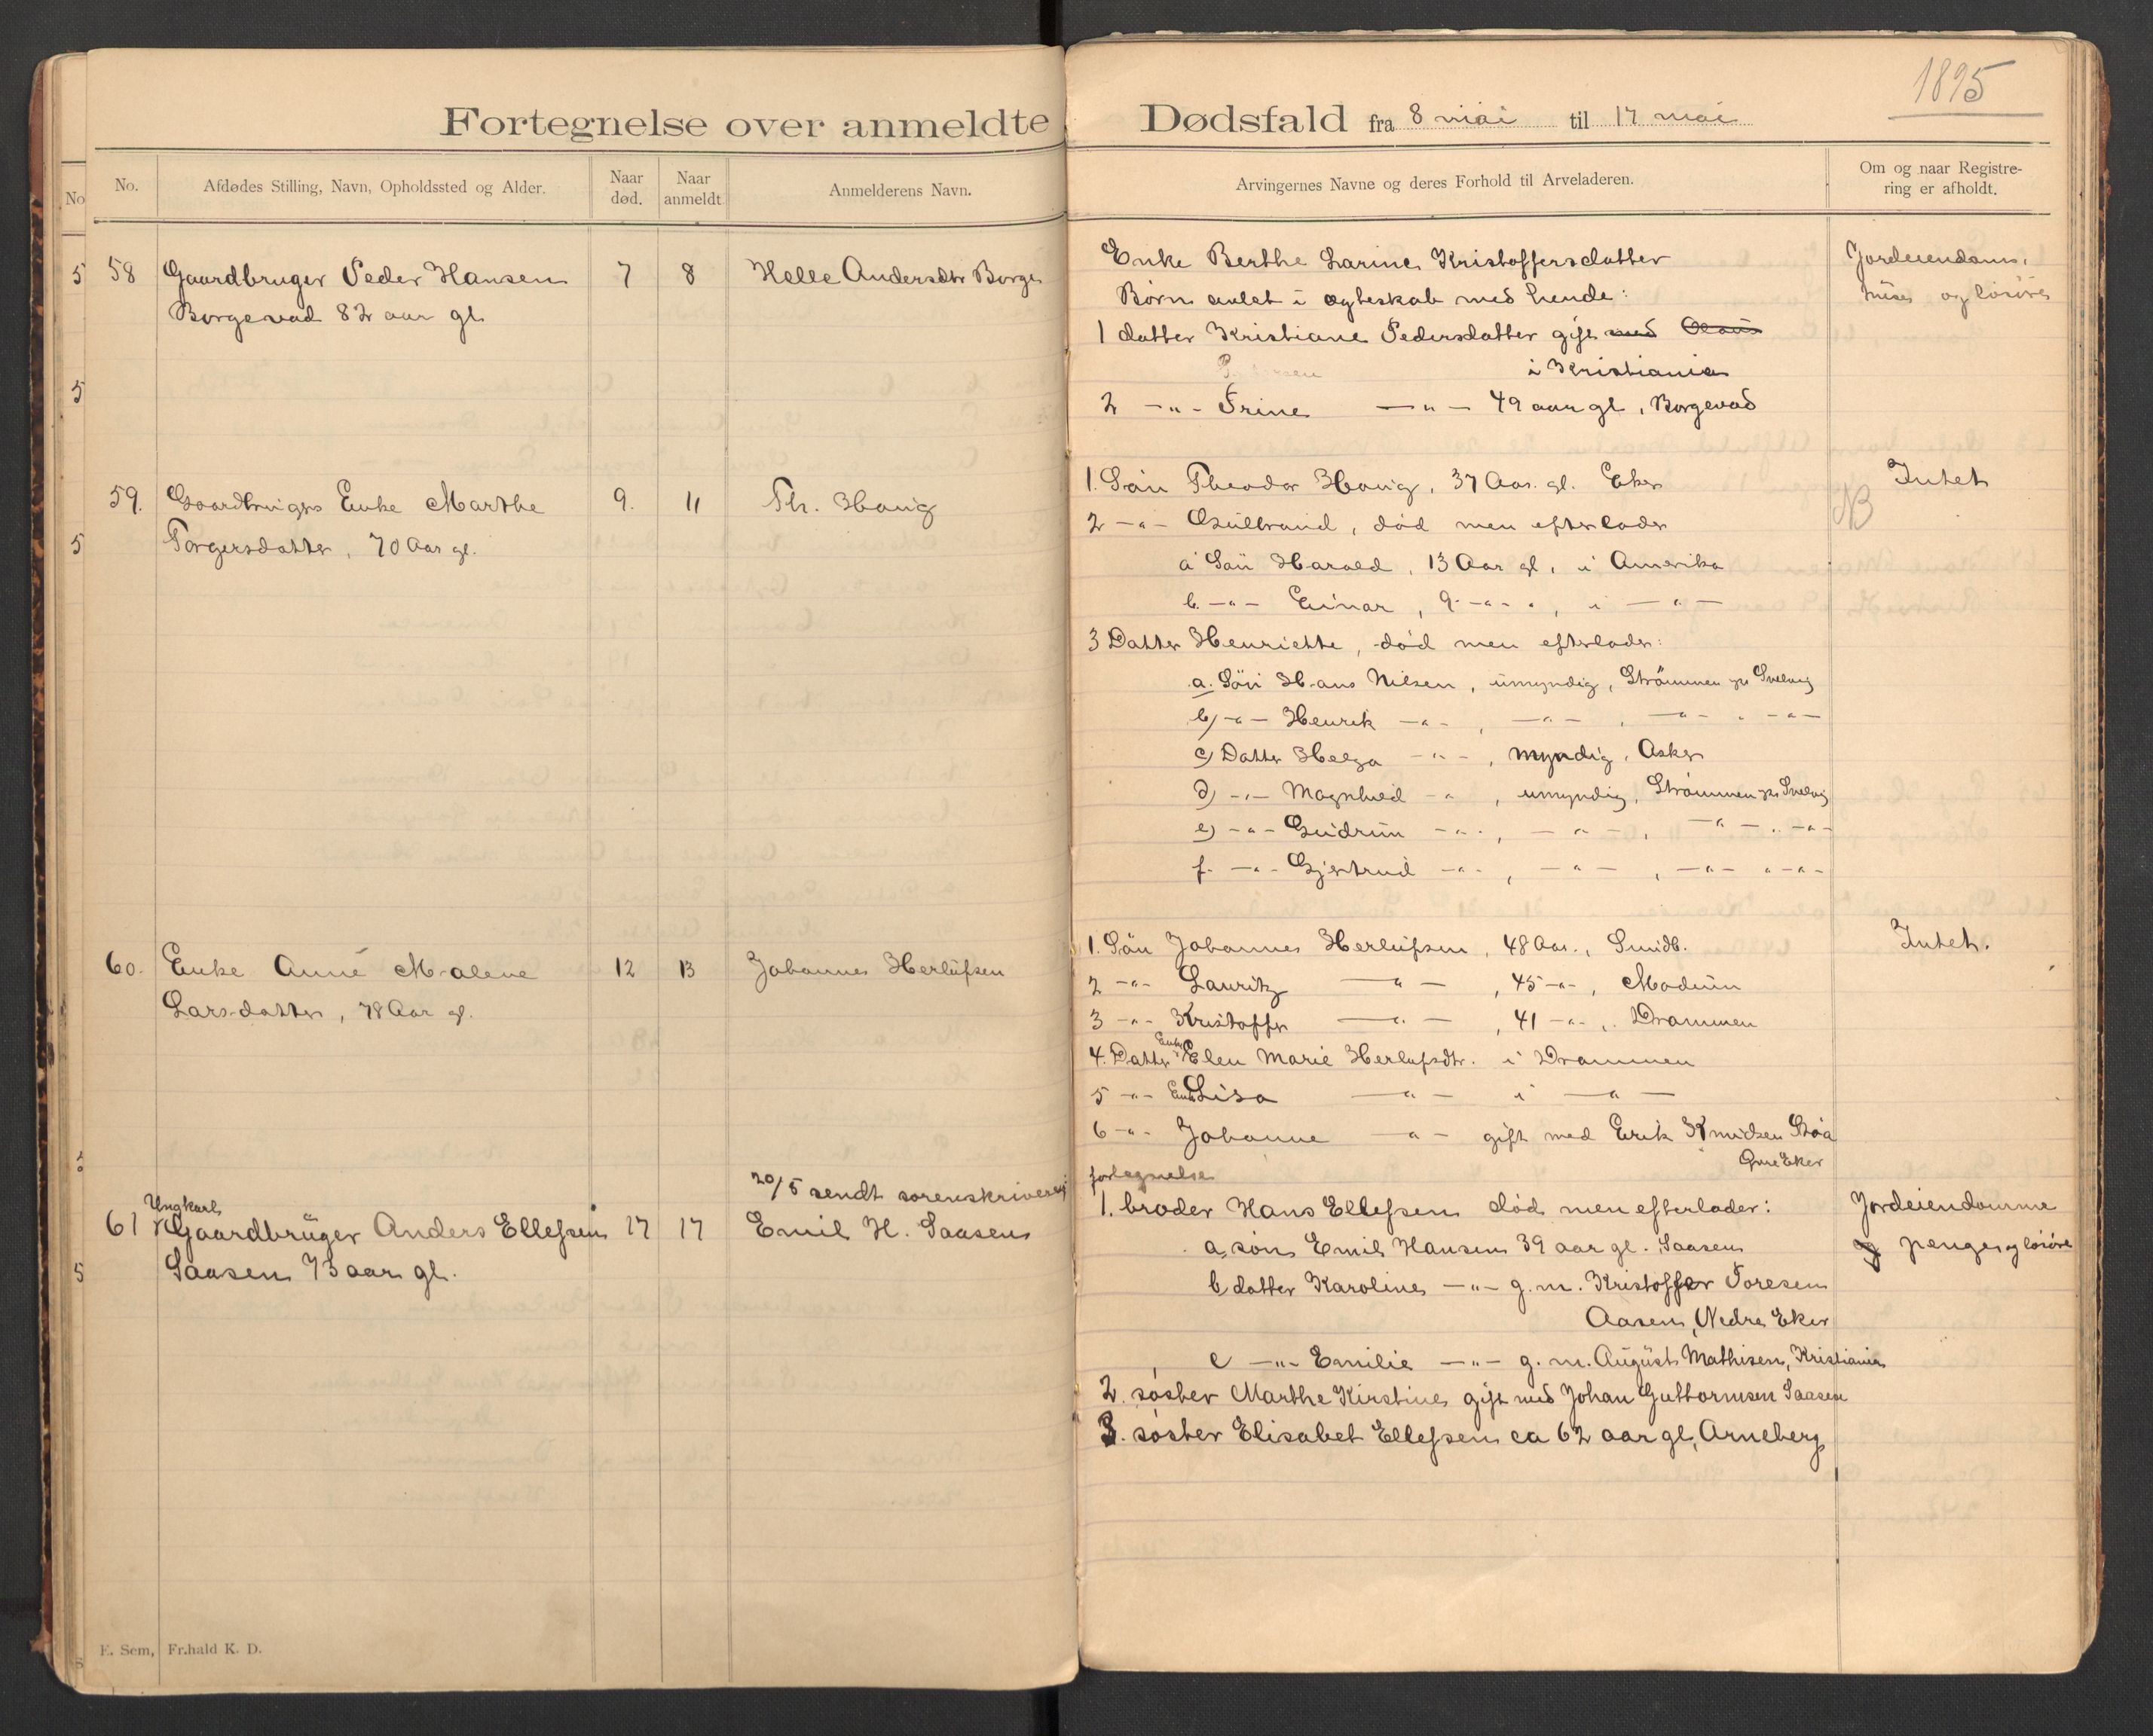 1895
Fortegnelse over anmeldte Dødsfald fra 8 mai til 17 mai
No. Afdødes Stilling, Navn, Opholdssted og Alder. Naar død. Naar anmeldt Anmelderens Navn. Arvingernes Navne og deres Forhold til Arveladeren. Om og naar Registrering er afholdt.
58 Gaardbruger Peder Hansen 7 8 Helle Andersdtr Borge
Borgevad 82 aar gl.
Enke Berthe Larine Kristoffersdatter
Børn avlet i egteskab med hende:
1 datter Kristiane Pedersdatter gift med
i Kristiania
2 -"- Trine -"- 49 aar gl, Borgevad
Jordeiendom,
huse og løsøre
59. Gaardbrugers Enke Marthe 9. 11 Th. Houg
Torgersdatter, 70 Aar gl.
1. Søn Theodor Houg, 37 Aar. gl. Eker
2 -"- Gulbrand, død men efterlader
a Søn Harald, 13 Aar gl, i Amerika
b. -"- Einar, 9 -"- ", i -"-
3 Datter Henriette, død men efterlader:
a. Søn Hans Nilsen, umyndig, Strømmen pr Svelvig
b) -"- Henrik -"-, -"-, -"- " -"-
c) Datter Helga -"-, myndig, Asker
d) -"- Magnhild -"-, umyndig, Strømmen pr Svelvig
e) -"- Gudrun -"-, -"-, -"- " -"-
f. -"- Gjertrud -"-, -"-, -"- " -"-
Intet
NB
60. Enke Anne Malene 12 13 Johannes Herlufsen
Larsdatter, 78 Aar gl.
1. Søn Johannes Herlufsen, 48 Aar., Smidb.
2 -"- Lauritz -"-, 45 -"-, Modum
3 -"- Kristoffer -"-, 41 -"-, Drammen
4. Datter Enke Elen Marie Herlufsdtr. i Drammen
5 -"- Enke Lisa -"- i -"-
6 -"- Johanne -"- gift med Erik Knudsen
Øvre Eker
Intet.
20/5 sendt sorenskriveren fortegnelse
Ungkarl
61 Gaardbruger Anders Ellefsen 17 17 Emil H. Saasen
Saasen 73 aar gl.
1. broder Hans Ellefsen død men efterlader:
a, søn Emil Hansen 39 aar gl. Saasen
b datter Karoline -"- g.m. Kristoffer Toresen
Aasen, Nedre Eker
c -"- Emilie -"- g.m. August Mathisen, Kristiania
2. søster Marthe Kirstine gift med Johan Guttormsen Saasen
3. søster Elisabet Ellefsen ca 62 aar gl, Arneberg
Jordeiendomme
og penger og løsøre
E. Sem, Fr.hald K. D.